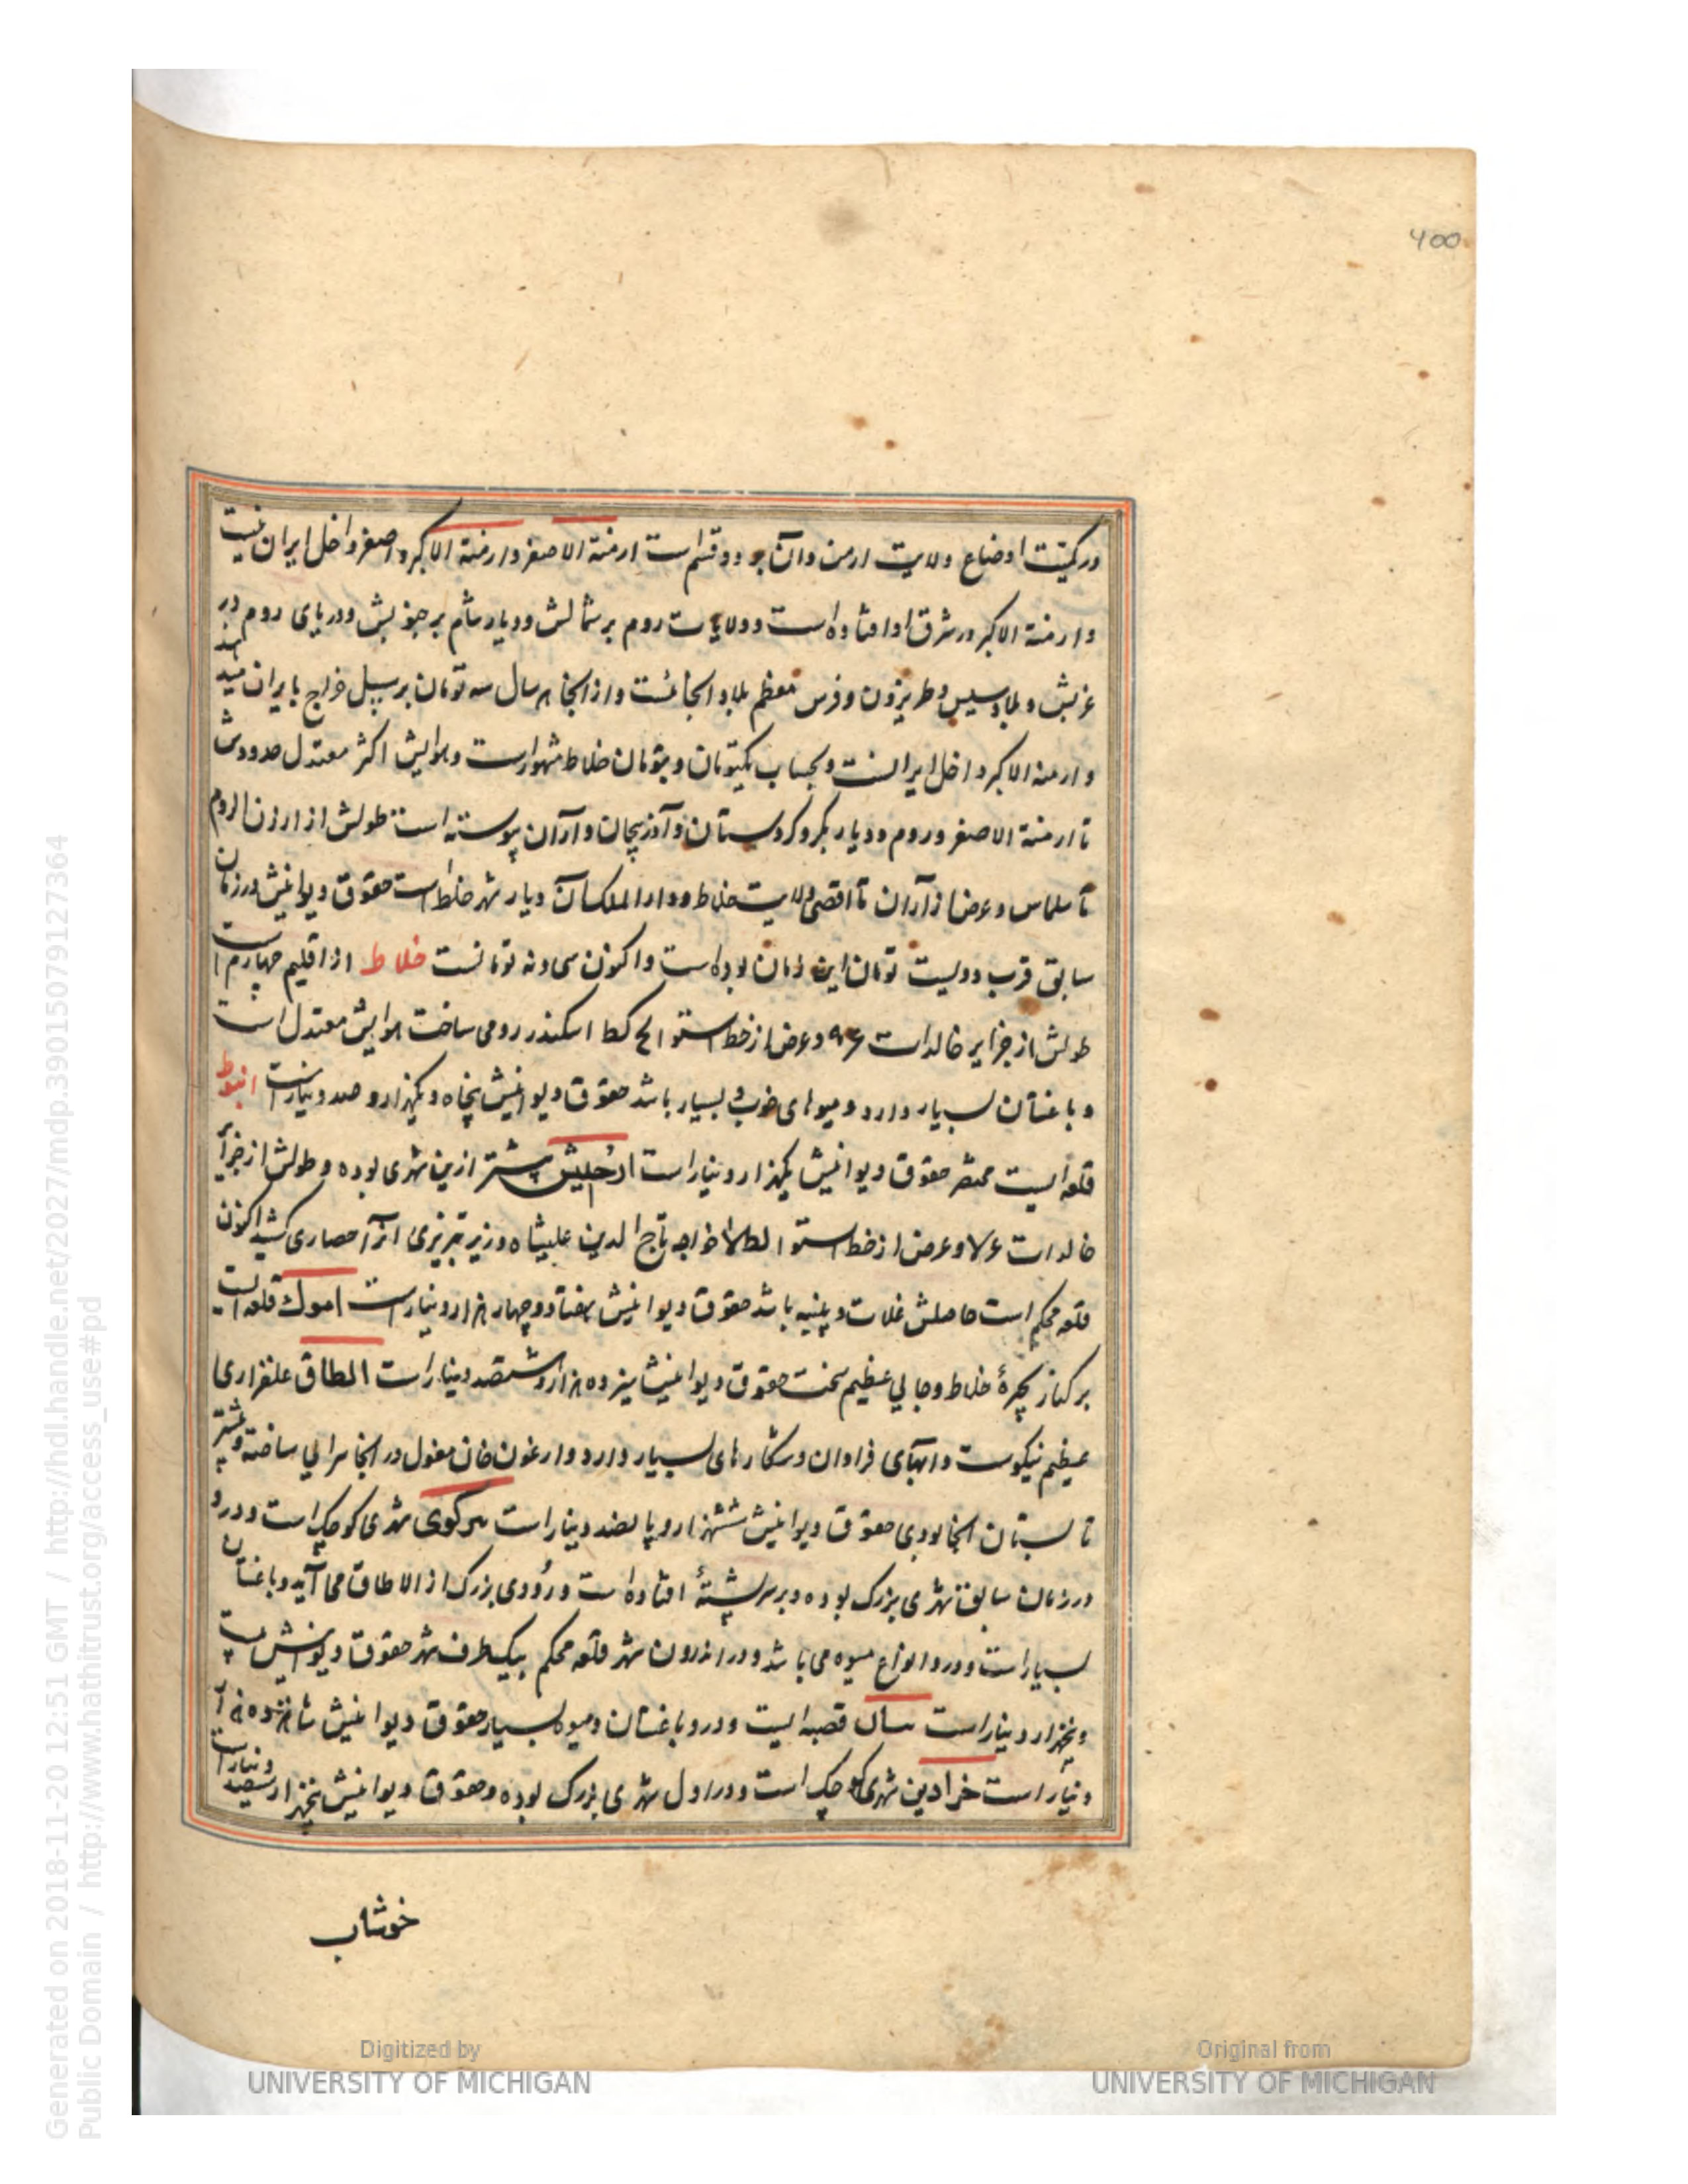 400
در کمیّت اوضاع ولایت ارمن و آن بر دو قسم است ارمنة الاصغر و ارمنة الاکبر و اصغر داخل ایران نیست
و ارمنة الاکبر در شرق او افتاده است و ولایات روم بر شمالش و دیار شام بر جنوبش و دریای روم در
غربش و بلاد سیس و طربزون و قرس معظم بلاد آنجا ئست و از آنجا هر سال سه تومان بر سبیل خراج بایران میدهند
و ارمنة الاکبر داخل ایرانست و بحساب یکتومان و بتومان خلاط مشهور است و هوایش اکثر معتدل حدودش
تا ارمنة الاصغر و روم و دیار بکر و کردستان و آذربیجان و ارّان پیوسته است طولش از ارزن الروم
تا سلماس و عرض از ارّان تا اقصی ولایت خلاط و دار الملک آن دیار شهر خلاط است حقوق دیوانیش در زمان
سابق قرب دویست تومان این زمان بوده است و اکنون سی و نه تومانست خلاط از اقلیم چهارم است
طولش از جزایر خالدات و عرض از خط استوا اسکندر رومی ساخت هوایش معتدل است
و باغستان بسیار دارد و میوهای خوب و بسیار باشد حقوق دیوانیش پنجاه و یکهزار و صد دینار است
قلعه ایست مختصر حقوق دیوانیش یکهزار دینار است ارجیش پیشتر ازین شهری بوده و طولش از جزایر
خالدات و عرض از خط استوا خواجه تاج الدین علیشاه وزیر تبریزی آنرا حصاری کشید اکنون
قلعه محکم است حاصلش غلات و پنبه باشد حقوق دیوانیش هفتاد و چهار هزار دینار است اموک قلعه ایست
بر کنار بحیرهٔ خلاط و جایی عظیم سخت حقوق دیوانیش سیزده هزار و ششصد دینار است الطاق علفزاری
عظیم نیکوست و آبهای فراوان و شکارهای بسیار دارد و ارغون خان مغول در آنجا سرایی ساخته و بیشتر
تابستان آنجا بودی حقوق دیوانیش ششهزار و پانصد دینار است برکوی شهری کوچک است و در و
در زمان سابق شهری بزرگ بوده و بر سر پشتهٔ افتاده است و رودی بزرگ از الاطاق می آید و باغستان
بسیار است و در و انواع میوه می باشد و در اندرون شهر قلعه محکم بیک طرف شهر حقوق دیوانیش بیست
و پنجهزار دینار است قصبه ایست و در و باغستان و میوه بسیار حقوق دیوانیش شانزده هزار
دینار است خرادین شهری کوچک است و در اول شهری بزرگ بوده و حقوق دیوانیش پنجهزار و سیصد دینار است
خوشاب
Digitized by
UNIVERSITY OF MICHIGAN
Original from
UNIVERSITY OF MICHIGAN
Generated on 2018-11-20 12:51 GMT / http://hdl.handle.net/2027/mdp.39015079127364
Public Domain / http://www.hathitrust.org/access_use#pd